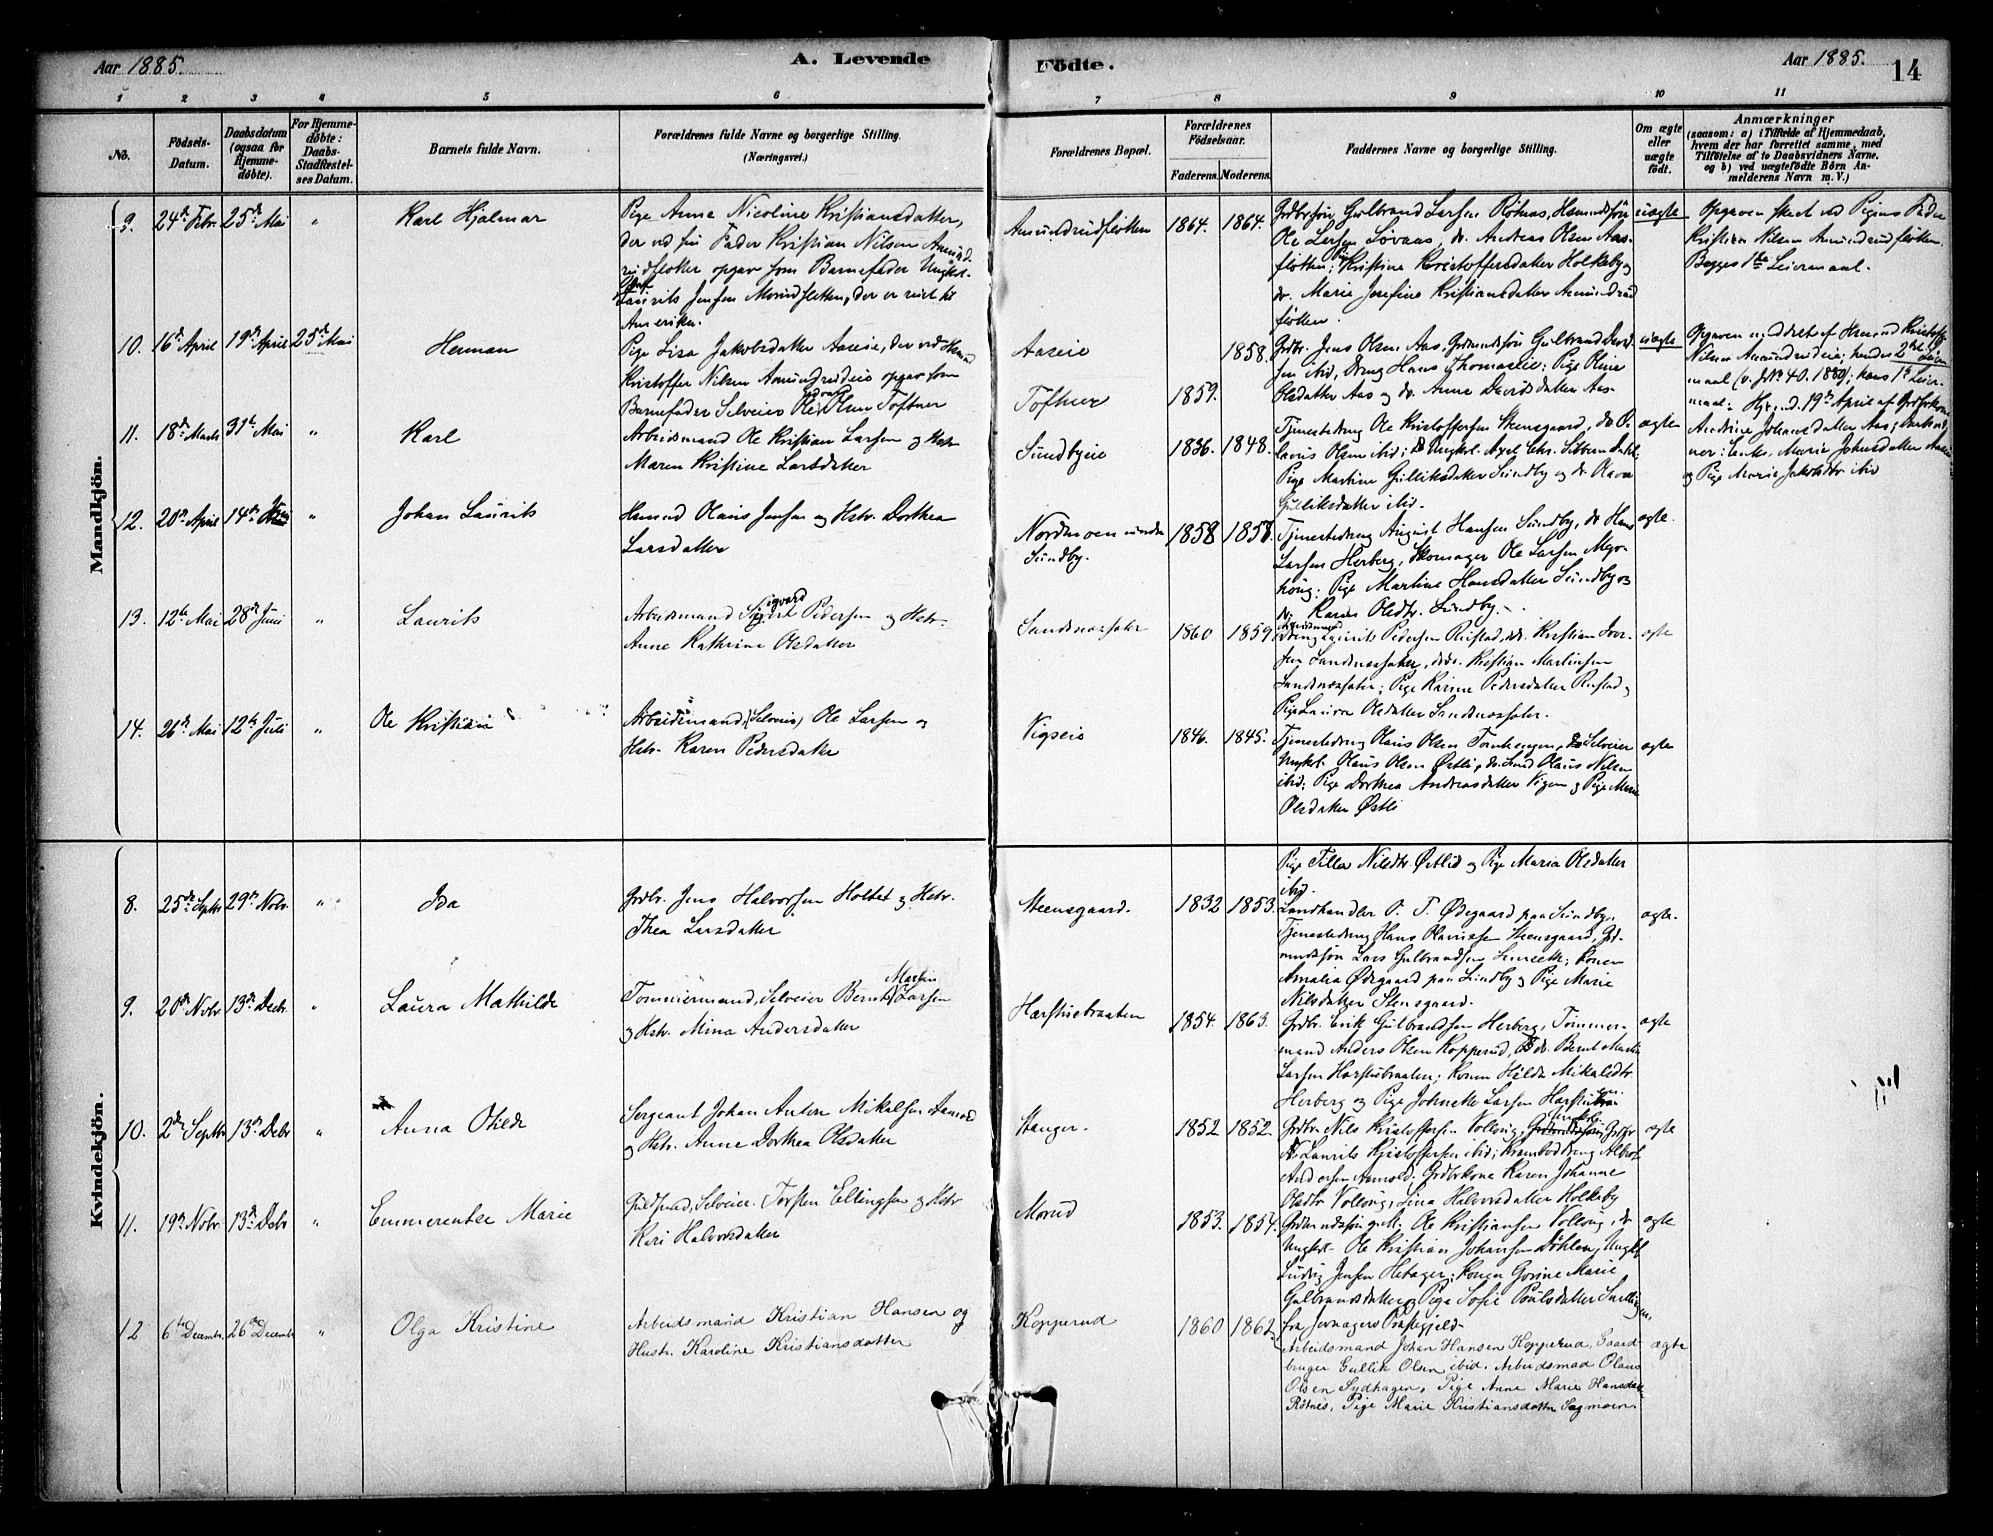 Aar 1885.
A. Levende
Födte.
Aar 1885.
14
1 2 3 4 5 6 7 8 9 10 11
No.
Födsels-Datum.
Daabsdatum (ogsaa for Hjemme-döbte).
For Hjemme-döbte: Daabs-Stadfæstel-ses Datum.
Barnets fulde Navn.
Forældrenes fulde Navne og borgerlige Stilling.
(Næringsvei.)
Forældrenes Bopæl.
Forældrenes Födselsaar.
Faderens. Moderens.
Faddernes Navne og borgerlige Stilling.
Om ægte eller uægte födt.
Anmærkninger
(saasom: a) i Tilfælde af Hjemmedaab,
hvem der har forrettet samme, med
Tilföielse af to Daabsvidners Navne,
og b) ved uægtefödte Börn An-
melderens Navn m. V.)
Mandkjön.
9. 24de Febr. 25de Mai " Karl Hjalmar
Pige Anna Nicoline Kristiansdatter,
der ved sin Fader Kristian Nilsen Amund-
rudfløtten opgav som Barnefader Ungkarl
Laurits Jensen Morudfløtten, der er reist til
Amerika.
Amundrudfløtten 1864. 1864.
Grdbrsøn Gulbrand Larsen Rötnes,
Ole Larsen Løvaas, do. Andreas Olsen Aas-
fløtten; Pige Kristine Kristoffersdatter Holkeby og
do. Marie Josefine Kristiansdatter Amundrud
fløtten.
uægte
Opgaven skeet ved Pigens Fader
Kristian Nilsen Amundrudfløtten.
Begges 1ste Leiermaal.
10. 16de April 19de April 25de Mai Herman
Pige Lisa Jakobsdatter Aaseie, der ved
Kristoffer Nilsen Amundrudeie opgav som
Barnefader Selveier Ole Olsen Toftner
Aaseie 1858.
Tofther 1859.
Grdbr. Jens Olsen Aas, Grdmandssøn Gulbrand David-
sen ibid, Dreng Hans Thomaseie; Pige Oline
Olsdatter Aas og do. Anne Davidsdatter Aas.
uægte
Opgaven meddelt af Husmand Kristoffer
Nilsen Amundrudeie; hendes 2det Leier-
maal (v. J.No 40. 1880); hans 1ste Leier-
maal. Hjd. 19de April af Grdbrkone
Johansdatter Aas;
Marie Johnsdatter Aaseie
og Pige Marie Jakobsdtr ibid
11. 18de Marts 31te Mai " Karl
Arbeidsmand Ole Kristian Larsen og Hstr.
Maren Kristine Larsdatter
Sundbyeie 1836. 1848.
Tjenestedreng Ole Kristoffersen Steensgaard, do O.
Lauris Olsen ibid; Ungkl. Axel Chr. Sibbern Dahl,
Pige Martine Gulliksdatter Sundby og do. Olava
Gulliksdatter ibid.
ægte
12. 20de April 14de Juni " Johan Laurits
Husmd Olaus Jensen og Hstr. Dorthea
Larsdatter
Nordmoen under Sundby. 1858 1858.
Tjenestedreng August Hansen Sundby, do Hans
Larsen Herberg, Skomager Ole Larsen
Pige Martine Hansdatter Sundby og
do. Karen Olsdtr. Sundby.
ægte.
13. 12te Mai 28de Juni " Laurits
Arbeidsmand Sigvard Pedersen og Hstr.
Anne Kathrine Olsdatter
Sandnessæter 1860 1859
Arbeidsmand Laurits Pedersen Rustad, do. Kristian Iver-
sen Sandnessæter, do. Kristian Martinsen
Sandnessæter; Pige Karine Pedersdatter Rustad og
Pige Laura Olsdatter Sandnessæter.
ægte
14. 26de Mai 12te Juli " Ole Kristian
Arbeidsmand, (Selveier) Ole Larsen og
Hstr. Karen Pedersdatter
Vigseie 1846. 1845.
Tjenestedreng Olaus Olsen Tomtengen, Selveier
Ungkl. Olaus Olsen Østli, Olaus Nilsen
ibid; Pige Dorthea Andreasdatter Vigen og Pige Marie
Olsdatter Østli
ægte
Kvindekjön.
8. 25de Septbr 29de Novbr. " Ida
Grdbr. Jens Halvorsen Holtet og Hstr.
Thea Larsdatter
Steensgaard. 1832 1853.
Pige Tilla Nilsdtr. Østlid og Pige Maria Olsdatter
ibid.
Landhandler O. T. Ødegaard paa Sundby,
Tjenestedreng Hans Olaussen Steensgaard, Grd-
mandssøn Lars Gulbrandsen; Konen
Amalia Ødegaard paa Sundby og Pige Marie
Nilsdatter Stensgaard.
ægte.
9. 20de Novbr 13de Decbr. " Laura Mathilde
Tømmermand, Selveier Bernt Martin Larsen
og Hstr. Mina Andersdatter
Harstuebraaten 1854. 1863.
Grdbr. Erik Gulbrandsen Herberg, Tømmer-
mand Anders Olsen Kopperud, do. Bernt Martin
Larsen Harstubraaten; Konen Hilda Mikalsdtr.
Herberg og Pige Johnette Larsen Harstubraaten
ægte
10. 2den Septbr 13de Debr " Anna Otilde
Sergeant Johan Anton Mikalsen Aamod
og Hstr. Anne Dorthea Olsdatter
Stanger. 1852 1852
Grdbr. Nils Kristoffersen Vollaug, Grdbr.
Laurits Kristoffersen ibid; Krambodreng Albert
Andersen Arnold, Grdbrkone Karen Johanne
Olsdtr Vollaug, Lina Halvorsdatter Holkeby
ægte
11. 19de Novbr. 13de Debr " Emmerentse Marie
Selveier. Torsten Ellingsen og Hstr
Kari Halvorsdatter
Morud 1853. 1854.
Grdmandssøn Ole Kristiansen Vollaug, do
Ungkl. Ole Kristian Johansen Döhlen, Ungkl.
Ludvig Jensen Hebager; Konen Gorine Marie
Gulbrandsdatter og Pige Sofie Poulsdatter
fra Jevnagers Præstegjeld.
ægte
12 6te Decembr. 26de Decembr " Olga Kristine
Arbeidsmand Kristian Hansen og
Hustr. Karoline Kristiansdatter
Kopperud 1860 1862
Arbeidsmand Johan Hansen Kopperud, Gaard-
bruger Gullik Olsen ibid. Arbeidsmad Olaus
Olsen Sydhagen, Pige Anne Marie Hansdatter
Rötnes, Pige Marie Kristiansdatter Sagmoen.
ægte